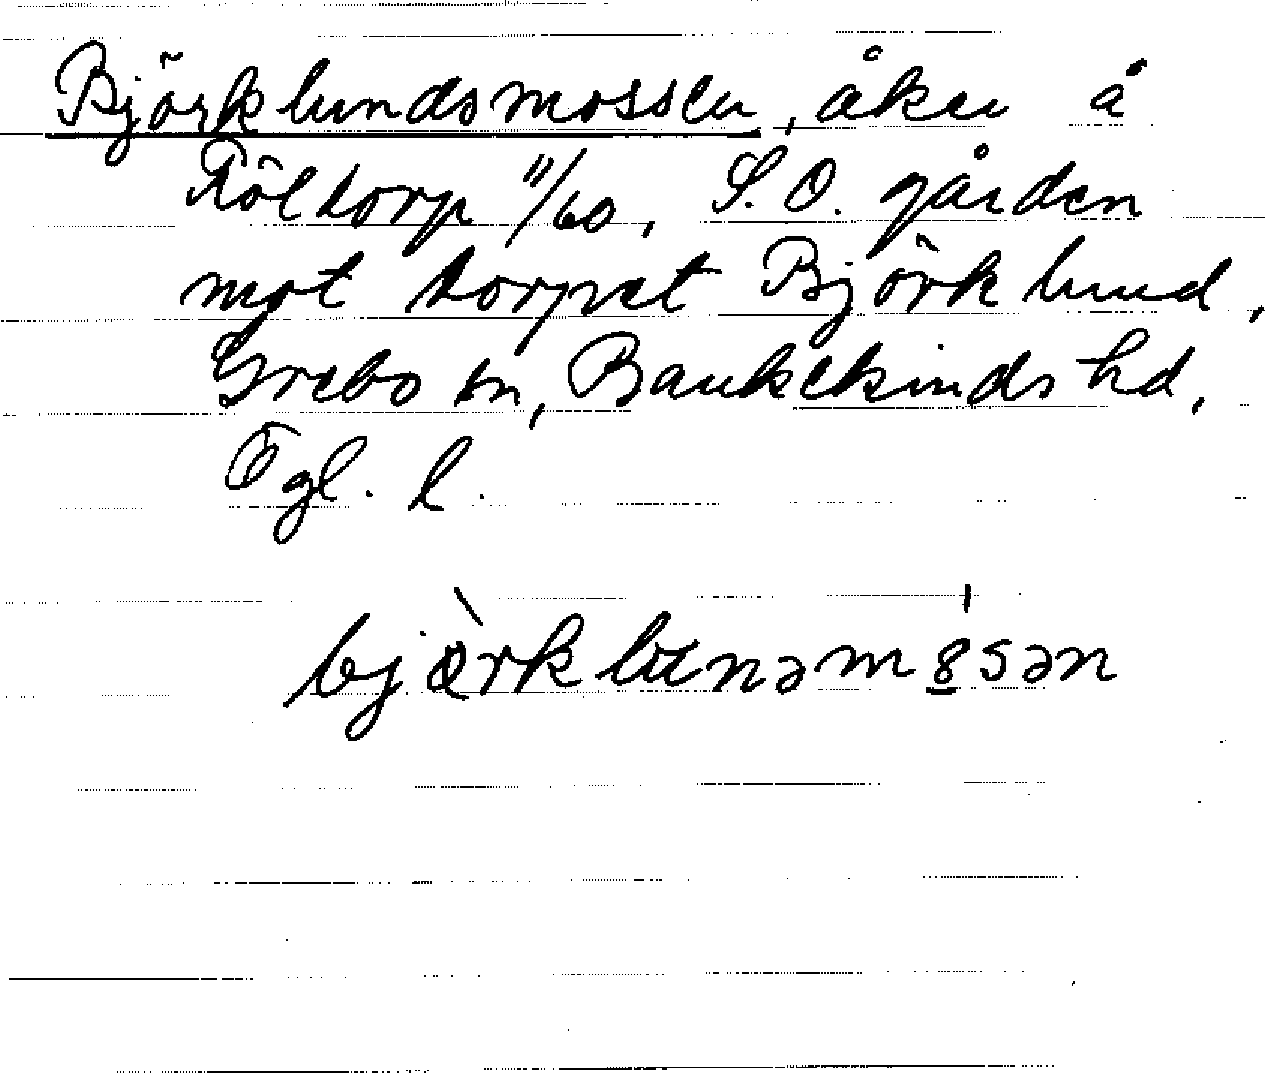 Björklundsmossen, åker å
Föltorp 11/60, S.O. gården
mot torpet Björklund,
Grebo sn, Bankekinds hd,
Ögl. l.